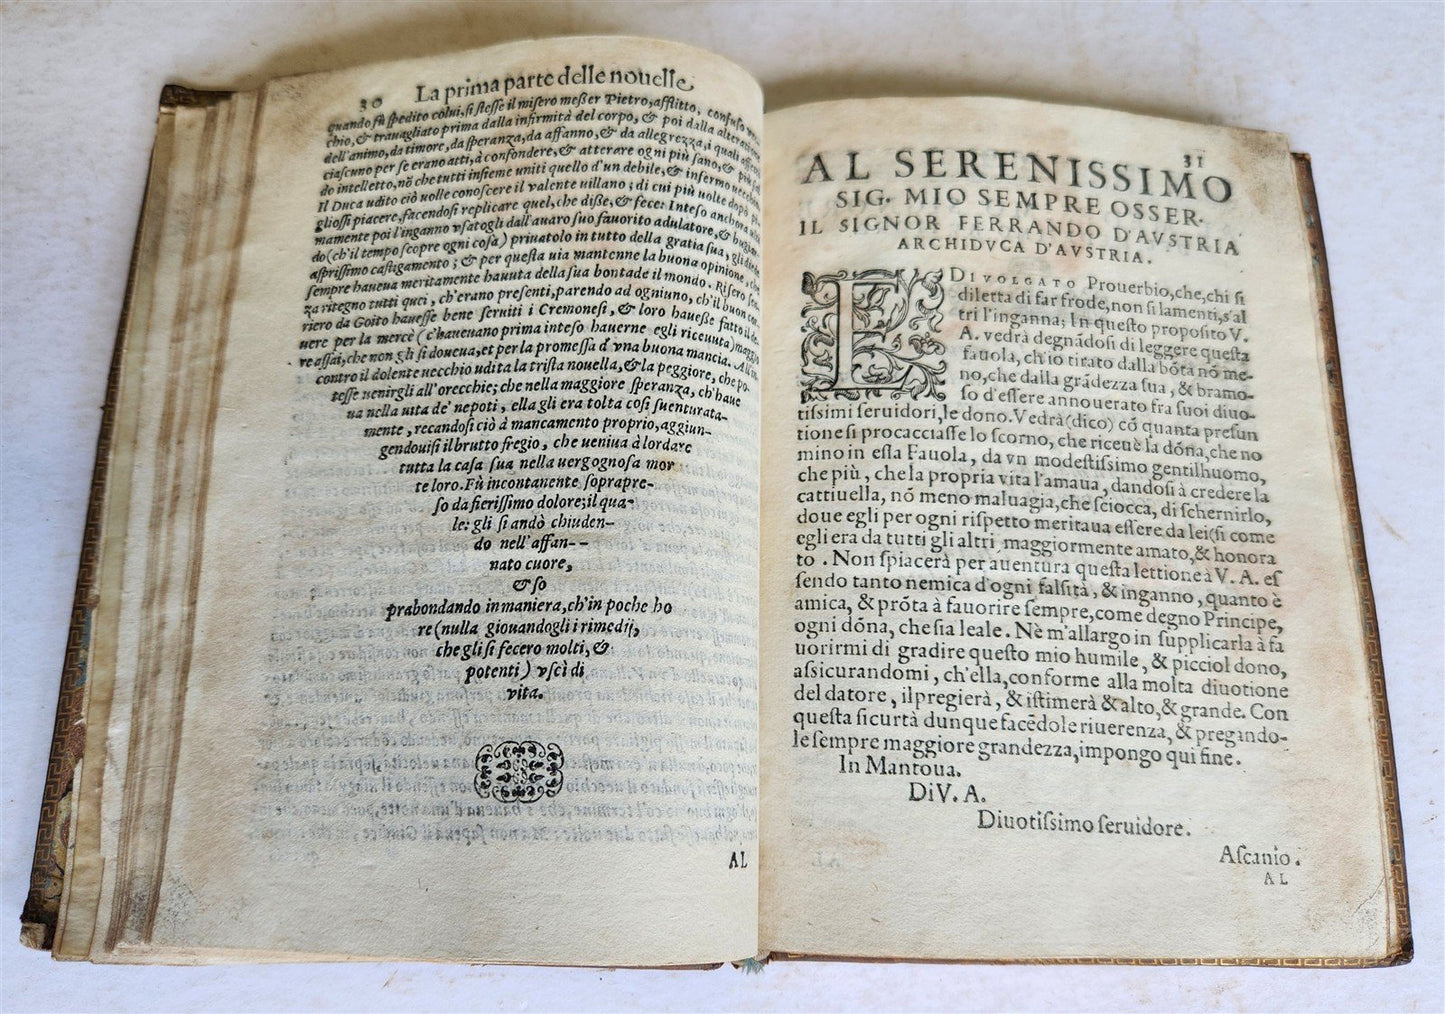 30 La prima parte delle nouelle
quando fù spedito colui, si stesse il misero meßer Pietro, afflitto, confuso
chio, & trauagliato prima dalla infirmità del corpo, & poi dalla alteratione
dell'animo, da timore, da speranza, da affanno, & da allegrezza, i quali
ciascuno per se erano atti, à confondere, & atterare ogni più sano, & più
do intelletto, nõ che tutti insieme uniti quello d'un debile, & infermo uecchio.
Il Duca udito ciò uolle conoscere il valente uillano; di cui più uolte dopò
gliossi piacere, facendosi replicare quel, che diße, & fece: Inteso anchora
mamente poi l'inganno vsatogli dall'auaro suo fauorito adulatore, &
do (ch'il tempo scopre ogni cosa) priuatolo in tutto della gratia sua, gli diede
asprissimo castigamento; & per questa uia mantenne la buona opinione, che
sempre haueua meritamente hauuta della sua bontade il mondo. Risero
za ritegno tutti quei, ch'erano presenti, parendo ad ogniuno, ch'il buon
riero da Goito hauesse bene seruiti i Cremonesi, & loro haueße fatto il
uere per la mercè (c'haueuano prima inteso hauerne egli riceuuta) maggio
re assai, che non gli si doueua, et per la promessa d'vna buona mancia. All'in
contro il dolente uecchio udita la trista nouella, & la peggiore, che po-
tesse uenirgli all'orecchie; che nella maggiore speranza, ch'haue
ua nella uita de' nepoti, ella gli era tolta così suenturata-
mente, recandosi ciò à mancamento proprio, aggiun-
gendouisi il brutto fregio, che ueniua à lordare
tutta la casa sua nella uergognosa mor
te loro. Fù incontanente soprapre-
so da fierissimo dolore; il qua-
le: gli si andò chiuden-
do nell'affan--
nato cuore,
& so
prabondando in maniera, ch'in poche ho
re (nulla giouandogli i rimedij,
che gli si fecero molti, &
potenti) vscì di
vita.
AL
31
AL SERENISSIMO
SIG. MIO SEMPRE OSSER.
IL SIGNOR FERRANDO D'AVSTRIA
ARCHIDVCA D'AVSTRIA.
E DIVOLGATO Prouerbio, che, chi si
diletta di far frode, non si lamenti, s'al
tri l'inganna; In questo proposito V.
A. vedrà degnãdosi di leggere questa
fauola, ch'io tirato dalla bõtà nõ me-
no, che dalla grãdezza sua, & bramo-
so d'essere annouerato fra suoi diuo-
tissimi seruidori, le dono. Vedrà (dico) cõ quanta presun
tione si procacciasse lo scorno, che riceuè la dõna, che no
mino in essa Fauola, da vn modestissimo gentilhuomo,
che più, che la propria vita l'amaua, dandosi à credere la
cattiuella, nõ meno maluagia, che sciocca, di schernirlo,
doue egli per ogni rispetto meritaua essere da lei (si come
egli era da tutti gli altri maggiormente amato, & honora
to. Non spiacerà per auentura questa lettione à V. A. es
sendo tanto nemica d'ogni falsità, & inganno, quanto è
amica, & prõta à fauorire sempre, come degno Principe,
ogni dõna, che sia leale. Nè m'allargo in supplicarla à fa
uorirmi di gradire questo mio humile, & picciol dono,
assicurandomi, ch'ella, conforme alla molta diuotione
del datore, il pregierà, & istimerà & alto, & grande. Con
questa sicurtà dunque facẽdole riuerenza, & pregando-
le sempre maggiore grandezza, impongo qui fine.
In Mantoua.
Di V. A.
Diuotissimo seruidore.
Ascanio.
AL